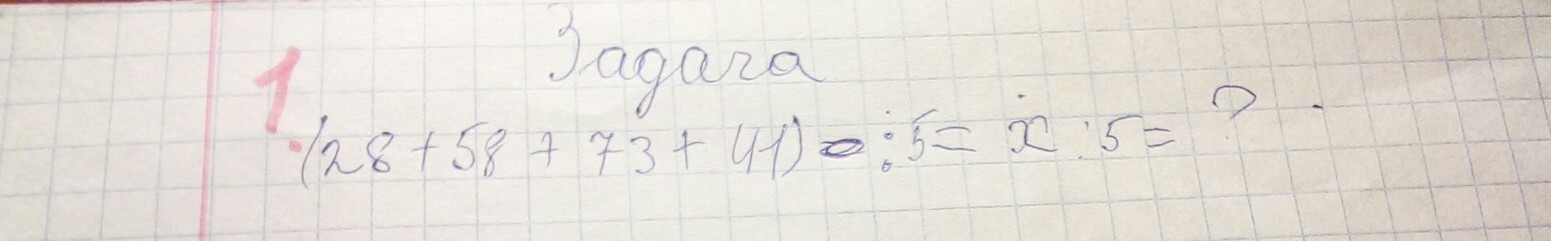 Задача
1. (28+58+73+41) :5= x :5= ?